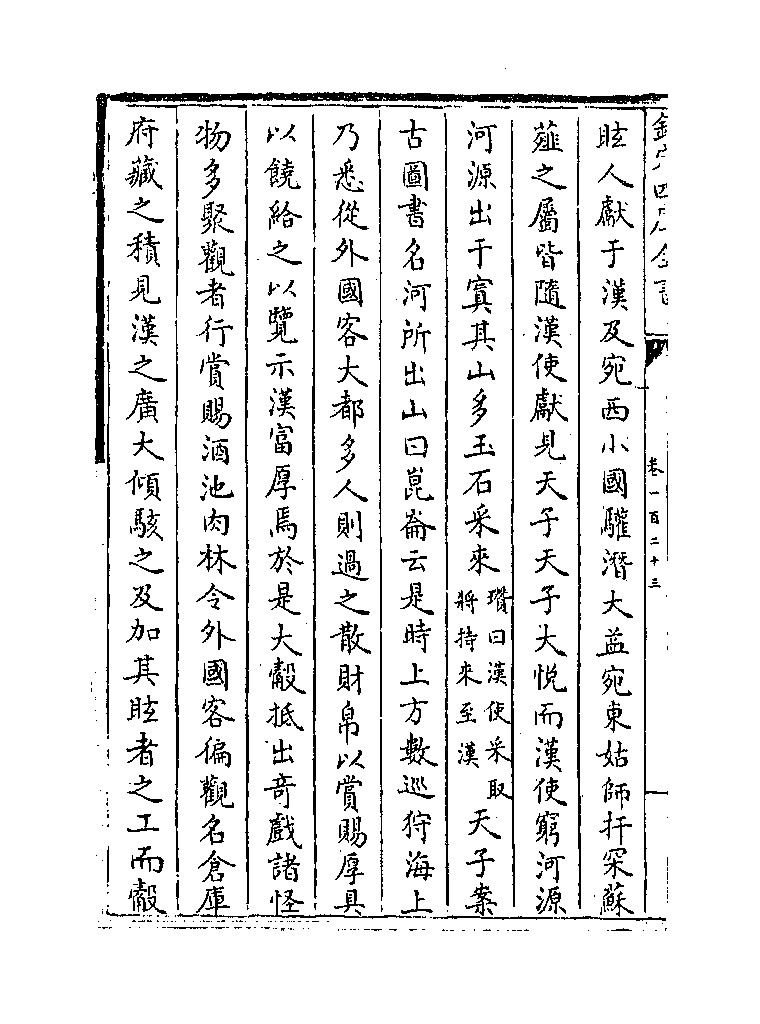 欽定四庫全書
卷一百二十三
眩人獻于漢及宛西小國驩潛大益宛東姑師扞罙蘇
薤之屬皆隨漢使獻見天子天子大悅而漢使窮河源
河源出于窴其山多玉石采來瓉曰漢使采取將持來至漢天子案
古圖書名河所出山曰崑崙云是時上方數巡狩海上
乃悉從外國客大都多人則過之散財帛以賞賜厚具
以饒給之以覽示漢富厚焉於是大觳抵出竒戲諸怪
物多聚觀者行賞賜酒池肉林令外國客徧觀名倉庫
府藏之積見漢之廣大傾駭之及加其眩者之工而觳